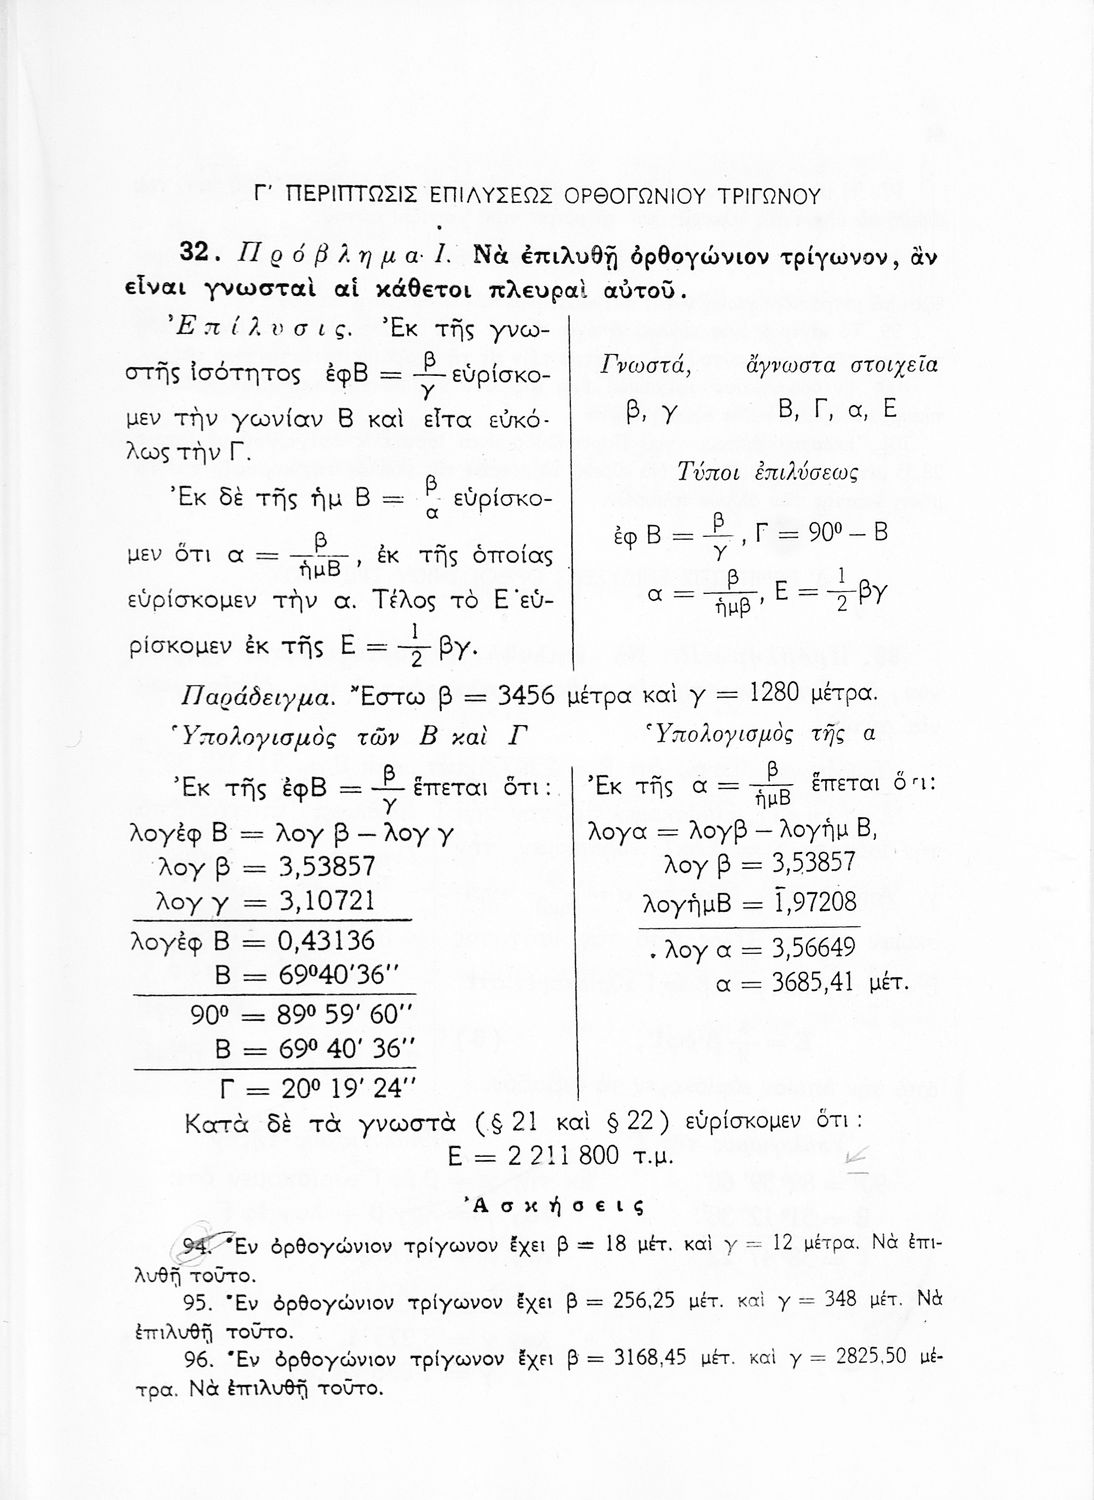 Γ' ΠΕΡΙΠΤΩΣΙΣ ΕΠΙΛΥΣΕΩΣ ΟΡΘΟΓΩΝΙΟΥ ΤΡΙΓΩΝΟΥ
32. Πρόβλημα Ι. Νὰ ἐπιλυθῇ ὀρθογώνιον τρίγωνον, ἂν
εἶναι γνωσταὶ αἱ κάθετοι πλευραὶ αὐτοῦ.
Ἐπίλυσις. Ἐκ τῆς γνω-
στῆς ἰσότητος ἐφΒ = β/γ εὑρίσκο-
μεν τὴν γωνίαν Β καὶ εἶτα εὐκό-
λως τὴν Γ.
Ἐκ δὲ τῆς ἡμ Β = β/α εὑρίσκο-
μεν ὅτι α = β/ἡμΒ, ἐκ τῆς ὁποίας
εὑρίσκομεν τὴν α. Τέλος τὸ Ε εὑ-
ρίσκομεν ἐκ τῆς Ε = 1/2 βγ.
Γνωστά, ἄγνωστα στοιχεῖα
β, γ Β, Γ, α, Ε
Τύποι ἐπιλύσεως
ἐφ Β = β/γ, Γ = 90⁰ – Β
α = β/ἡμβ, Ε = 1/2 βγ
Παράδειγμα. Ἔστω β = 3456 μέτρα καὶ γ = 1280 μέτρα.
Ὑπολογισμὸς τῶν Β καὶ Γ
Ἐκ τῆς ἐφΒ = β/γ ἕπεται ὅτι:
λογἐφ Β = λογ β – λογ γ
λογ β = 3,53857
λογ γ = 3,10721
λογἐφ Β = 0,43136
Β = 69⁰40'36''
90⁰ = 89⁰ 59' 60''
Β = 69⁰ 40' 36''
Γ = 20⁰ 19' 24''
Ὑπολογισμὸς τῆς α
Ἐκ τῆς α = β/ἡμΒ ἕπεται ὅτι:
λογα = λογβ – λογἡμ Β,
λογ β = 3,53857
λογἡμΒ = 1̅,97208
λογ α = 3,56649
α = 3685,41 μέτ.
Κατὰ δὲ τὰ γνωστὰ (§ 21 καὶ § 22) εὑρίσκομεν ὅτι :
Ε = 2 211 800 τ.μ.
Ἀσκήσεις
94. Ἓν ὀρθογώνιον τρίγωνον ἔχει β = 18 μέτ. καὶ γ = 12 μέτρα. Νὰ ἐπι-
λυθῇ τοῦτο.
95. Ἓν ὀρθογώνιον τρίγωνον ἔχει β = 256,25 μέτ. καὶ γ = 348 μέτ. Νὰ
ἐπιλυθῇ τοῦτο.
96. Ἓν ὀρθογώνιον τρίγωνον ἔχει β = 3168,45 μέτ. καὶ γ = 2825,50 μέ-
τρα. Νὰ ἐπιλυθῇ τοῦτο.